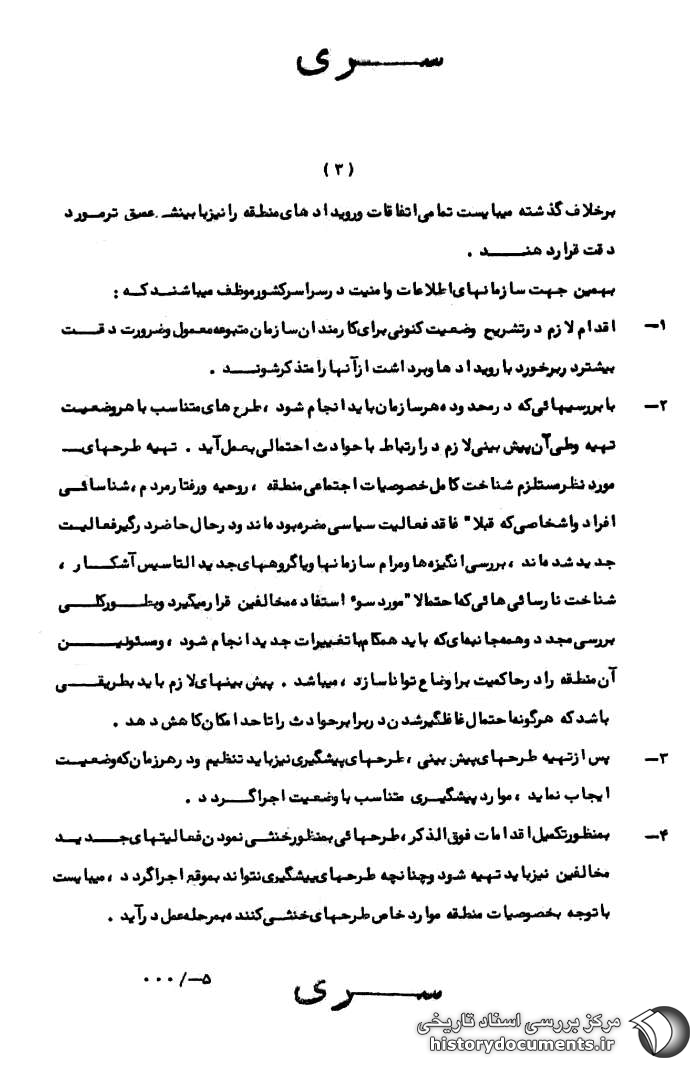 ســـری
( ۳ )
برخلاف گذشته میبایست تمامی اتفاقات ورویدادهای منطقه رانیزبابینشـ عمیق ترمورد
دقت قراردهنـــد .
بهمین جهت سازمانهای اطلاعات وامنیت درسراسرکشورموظف میباشندکه :
۱— اقدام لازم درتشریح وضعیت کنونی برای کارمندان سازمان متبوعه معمول وضرورت دقـــت
بیشتردربرخورد بارویدادها وبرداشت ازآنها رامتذکرشونـــد .
۲— بابررسیهائی که درمحدوده هرسازمان بایدانجام شود ، طرح های متناسب باهروضعیت
تهیه وطی آن پیش بینی لازم درارتباط باحوادث احتمالی بعمل آید . تهیه طرحهای
موردنظرمستلزم شناخت کامل خصوصیات اجتماعی منطقه ، روحیه ورفتارمردم ، شناسائـی
افراد واشخاصی که قبلا" فاقد فعالیت سیاسی مضره بوده اند ودرحال حاضردرگیرفعالیت
جدیدشده اند ، بررسی انگیزه ها ومرام سازمانها ویاگروههای جدیدالتاسیس آشکـــار ،
شناخت نارسائی هائی که احتمالا" موردسوء استفاده مخالفین قرارمیگیرد وبطـــورکلـــی
بررسی مجدد وهمه جانبه ای که باید همگام باتغییرات جدیدانجام شود ، ومسئولیـــن
آن منطقه رادرحاکمیت براوضاع تواناسازد ، میباشد . پیش بینهای لازم بایدبطریقـــی
باشدکه هرگونه احتمال غافلگیرشدن دربرابرحوادث راتاحدامکان کاهش دهد .
۳— پس ازتهیه طرحهای پیش بینی ، طرحهای پیشگیری نیزباید تنظیم ودرهرزمان که وضعیـــت
ایجاب نماید ، موارد پیشگیـری متناسب باوضعیت اجراگـــردد .
۴— بمنظورتکمیل اقدامات فوق الذکر ، طرحهائی بمنظورخنثـی نمودن فعالیتهای جـــدیـــد
مخالفین نیزباید تهیه شود وچنانچه طرحهای پیشگیری نتواند بموقع اجراگردد ، میبایست
باتوجه بخصوصیات منطقه موارد خاص طرحهای خنثـی کننده بمرحله عمل درآید .
۰۰۰/—۵
ســـری
مرکز بررسی اسناد تاریخی
historydocuments.ir